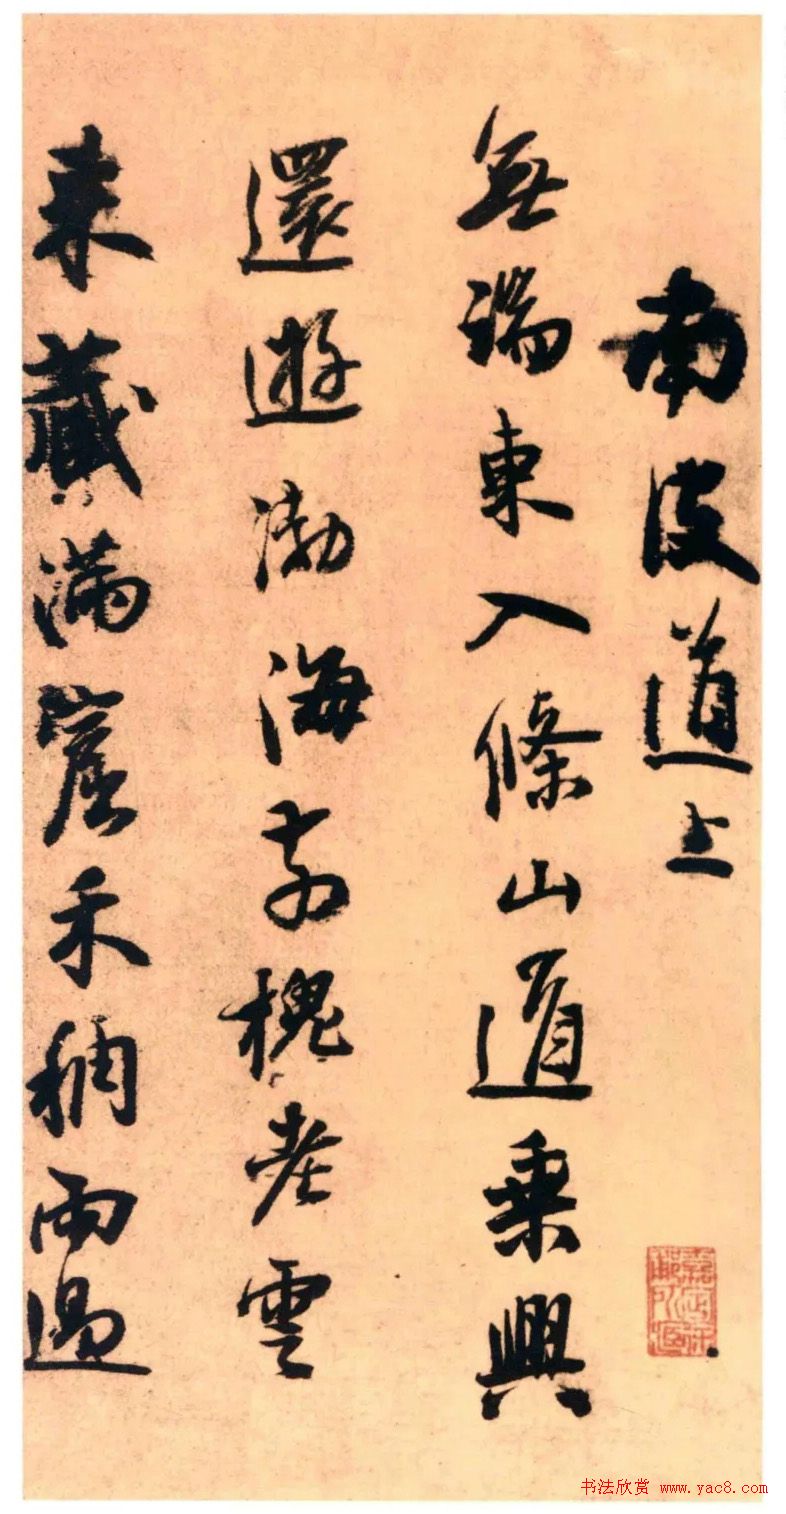 南皮道上
無端東入條山道乘興
還遊渤海槐老雲
來藏滿禾稠雨過
书法欣赏 www.yac8.com